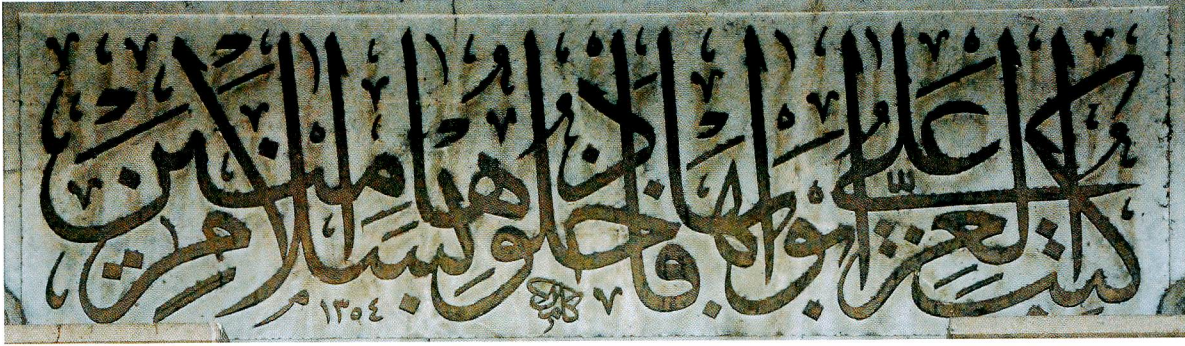 كتب العز على ابوابها فادخلوها بسلام امنين
١٣٥٤